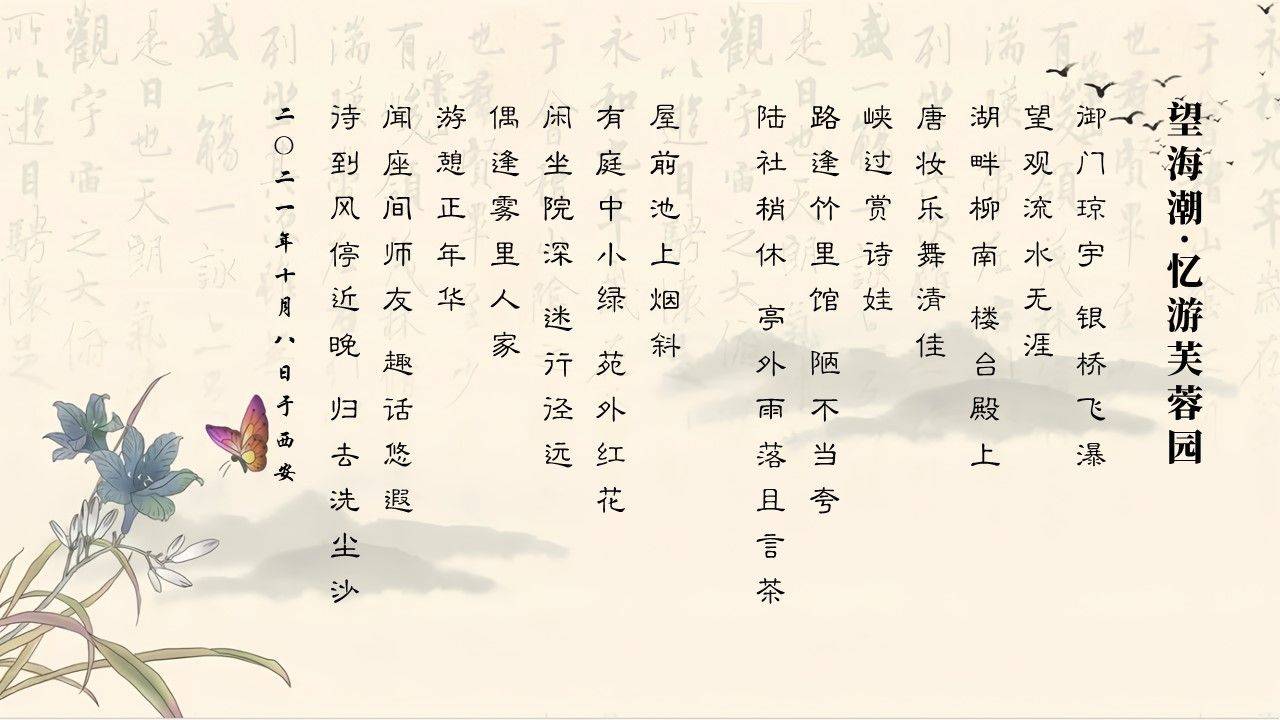 望海潮·忆游芙蓉园
御门琼宇 银桥飞瀑
望观流水无涯
湖畔柳南 楼台殿上
唐妆乐舞清佳
峡过赏诗娃
路逢竹里馆 陋不当夸
陆社稍休 亭外雨落且言茶
屋前池上烟斜
有庭中小绿 苑外红花
闲坐院深 迷行径远
偶逢雾里人家
游憩正年华
闻座间师友 趣话悠遐
待到风停近晚 归去洗尘沙
二〇二一年十月八日于西安